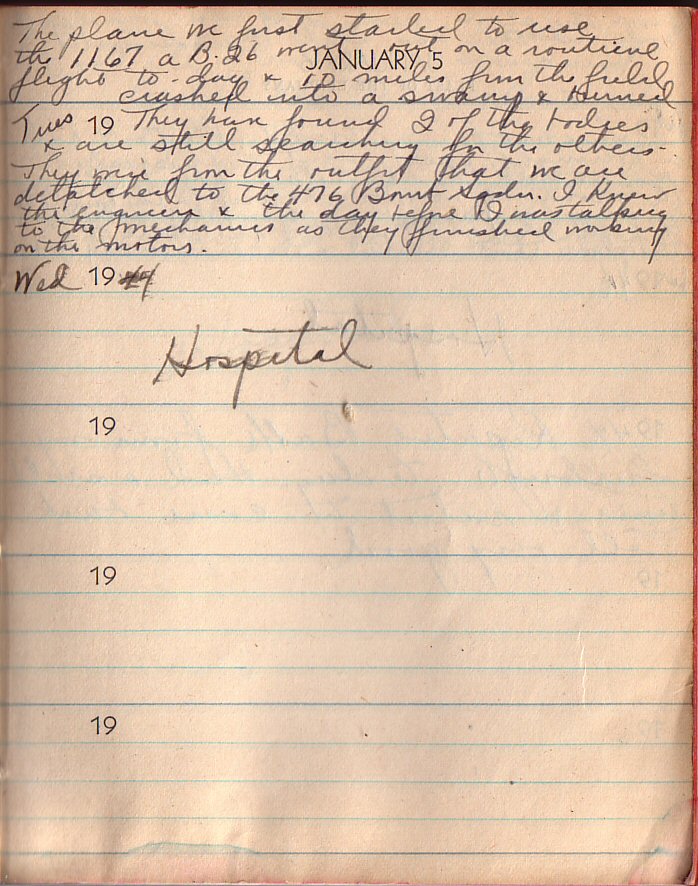 The plane we first started to use
the 1167 a B.26 went out on a routine
JANUARY 5
flight to-day & 10 miles from the field
crashed into a swamp & burned
Tues 19 They have found 2 of the bodies
& are still searching for the others.
They were from the outfit that we are
detatched to the 476 Bomb Sqdn. I knew
the engineer & the day before I was talking
to the mechanics as they finished working
on the motors.
Wed 1944
Hospital
19
19
19